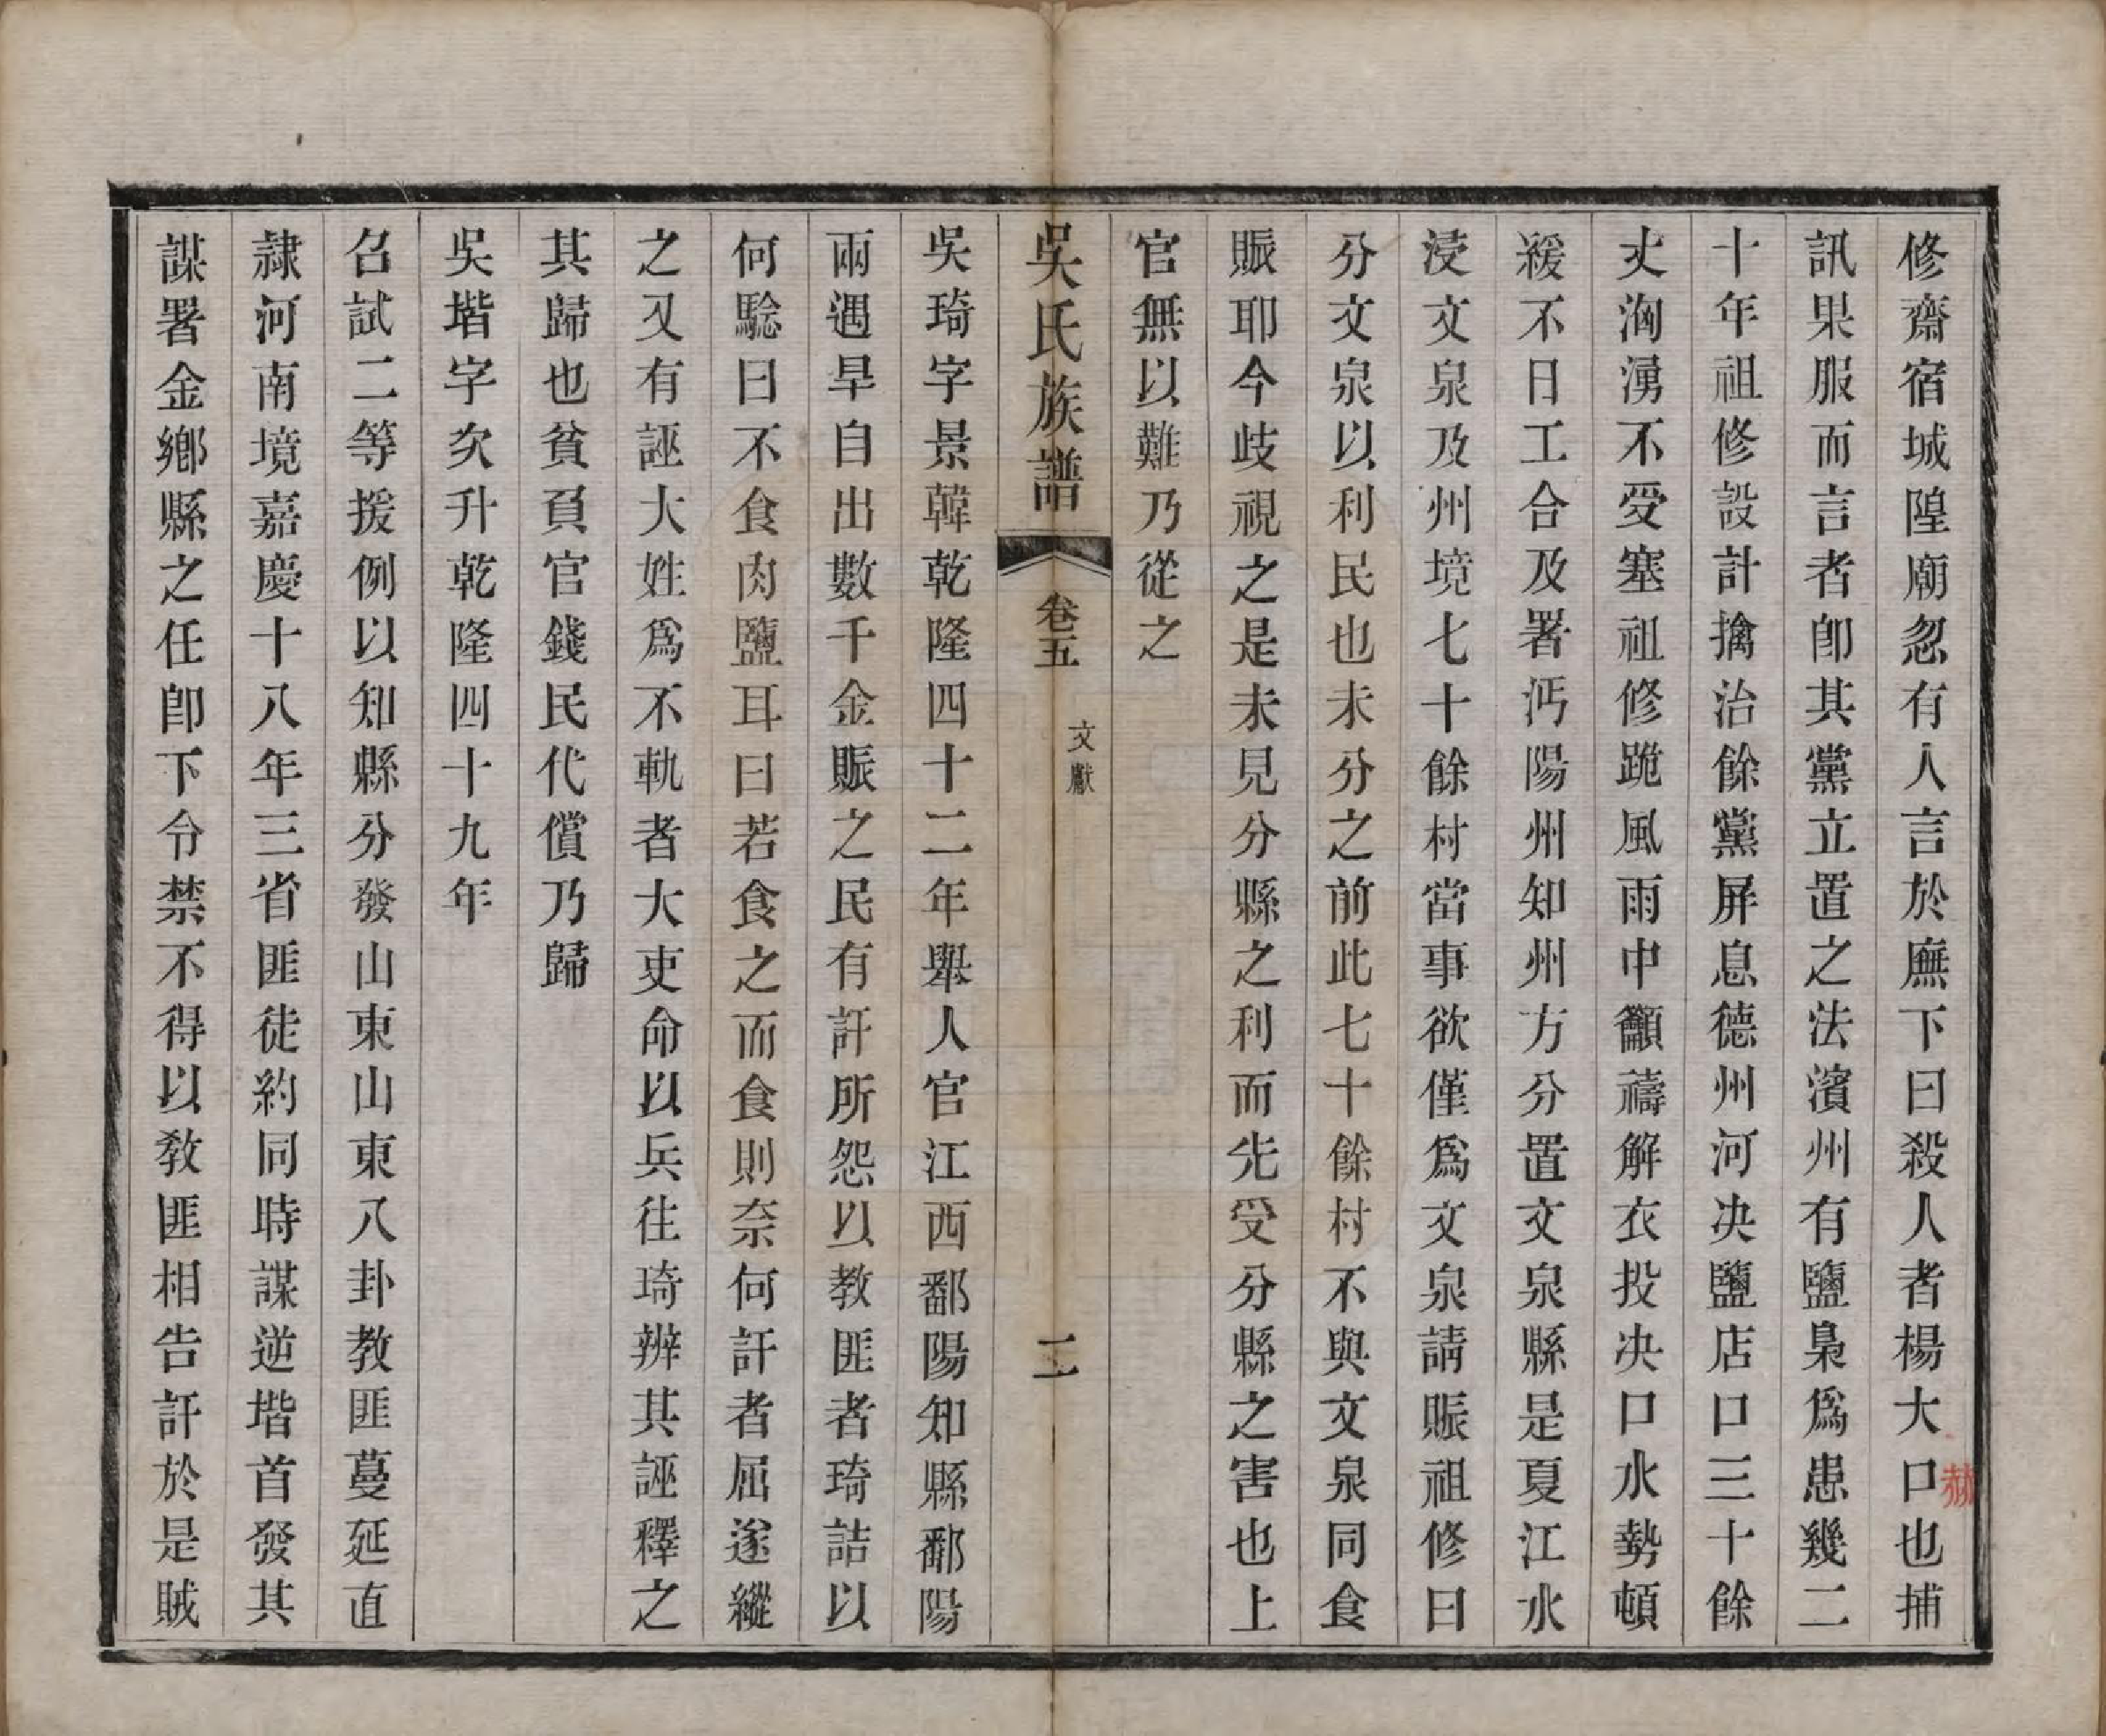 修齋宿城隍廟忽有人言於廡下曰殺人者楊大口也捕
訊果服而言者卽其黨立置之法濱州有鹽梟爲患幾二
十年祖修設計擒治餘黨屏息德州河决鹽店口三十餘
丈洶湧不受塞祖修跪風雨中籲禱解衣投决口水勢頓
緩不日工合及署沔陽州知州方分置文泉縣是夏江水
浸文泉及州境七十餘村當事欲僅爲文泉請賑祖修曰
分文泉以利民也未分之前此七十餘村不與文泉同食
賑耶今歧視之是未見分縣之利而先受分縣之害也上
官無以難乃從之
吳氏族譜 卷五 文獻 二
吳琦字景韓乾隆四十二年舉人官江西鄱陽知縣鄱陽
兩遇旱自出數千金賑之民有訐所怨以教匪者琦詰以
何驗曰不食肉鹽耳曰若食之而食則奈何訐者屈遂縱
之又有誣大姓爲不軌者大吏命以兵往琦辨其誣釋之
其歸也貧負官錢民代償乃歸
吳堦字次升乾隆四十九年
召試二等援例以知縣分發山東山東八卦教匪蔓延直
隸河南境嘉慶十八年三省匪徒約同時謀逆堦首發其
謀署金鄉縣之任卽下令禁不得以教匪相告訐於是賊
赫